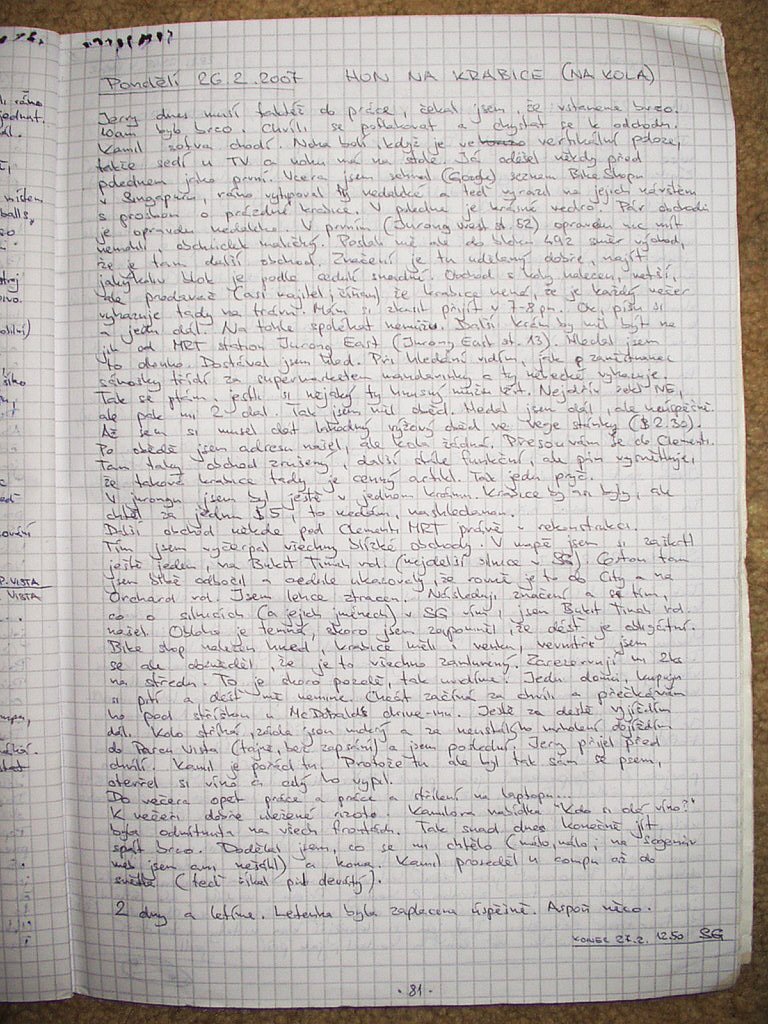 Pondělí 26.2.2007 HON NA KRABICE (NA KOLA)
Jerry dnes musí taktéž do práce, čekal jsem, že vstaneme brzo.
10am bylo brzo. Chvíli se poflakovat a chystat se k odchodu.
Kamil sotva chodí. Noha bolí, když je ve vertikální poloze,
takže sedí u TV a nohu má na stole. Já odešel někdy před
polednem jako první. Včera jsem sehnal (Google) seznam Bike Shopu
v Singapuru, ráno vytipoval ty nedaleké a teď vyrazil na jejich návštěvu
s prosbou o prázdné krabice. V poledne je krásné vedro. Pár obchodů
je opravdu nedaleko. V prvním (Jurong west st. 52) opravdu nic mít
nemohli, obchůdek maličký. Poslali mě ale do bloku 492 směr východ,
že je tam další obchod. Značení je tu udělaný dobře, najít
jakýkoliv blok je podle cedulí snadné. Obchod s koly nalezen, větší,
ale prodavač (asi majitel, číňan) že krabice nemá, že je každý večer
vyhazuje tady na trávník. Mám si zkusit přijít v 7-8 pm. Ok, píšu si
a jedu dál. Na tohle spoléhat nemůžu. Další krám by měl být na
jih od MRT station Jurong East (Jurong East st. 13). Hledal jsem
to dlouho. Dostával jsem hlad. Při hledání vidím, jak zaměstnanec
samošky třídí za supermarketem mandarinky a ty nehezké vyhazuje.
Tak se ptám, jestli si nějaký ty hnusný můžu vzít. Nejdřív řekl NE,
ale pak mi 2 dal. Tak jsem měl oběd. Hledal jsem dál, ale neúspěšně.
Až jsem si musel dát lahodný rýžový oběd ve vege stánku ($2.30).
Po obědě jsem adresu našel, ale kola žádná. Přesouvám se do Clementi.
Tam taky obchod zrušený, další stále funkční, ale pán vysvětluje,
že takové krabice tady je cenný artikl. Tak jedu pryč.
V Jurongu jsem byl ještě v jednom krámu. Krabice by asi byly, ale
chtěl za jednu $5, to nedám, nashledanou.
Další obchod někde pod Clementi MRT právě v rekonstrukci.
Tím jsem vyčerpal všechny blízké obchody. V mapě jsem si zaškrtl
ještě jeden, na Bukit Timah rd. (nejdelší silnice v SG). Cestou tam
jsem blbě odbočil a cedule ukazovaly, že rovně je to do City a na
Orchard rd. Jsem lehce ztracen. Následuji značení a s tím,
co o silnicích (a jejich jménech) v SG vím, jsem Bukit Timah rd.
našel. Obloha je temná, skoro jsem zapomněl, že déšť je obligátní.
Bike shop nalezen hned, krabice měli i venku, uvnitř jsem
se ale dozvěděl, že je to všechno zamluvený. Zarezervují mi 2ks
na středu. To je skoro pozdě, tak uvidíme. Jedu domů, kupuju
si pití a déšť mě nemine. Chcát začíná za chvíli a přečkávám
ho pod stříškou u McDonalds drive-inu. Ještě za deště vyjíždím
dál. Kolo stříká, záda jsou mokrý a za neustálého mrholení dojíždím
do Parcu Vista (tajně, bez zapsání) a jsem poslední. Jerry přijel před
chvílí. Kamil je pořád tu. Protože tu ale byl tak sám se psem,
otevřel si víno a celý ho vypil.
Do večera opět práce a práce a střílení na laptopu...
K večeři dobře uležené rizoto. Kamilova nabídka "Kdo si dá víno?"
byla odmítnuta na všech frontách. Tak snad dnes konečně jít
spát brzo. Dodělal jsem, co se mi chtělo (málo, málo; na
jsem ani nešáhl) a konec. Kamil proseděl u compu až do
světla (teď říkal půl devátý).
2 dny a letíme. Letenka byla zaplacena úspěšně. Aspoň něco.
KONEC 27.2. 12:50 SG
- 81 -